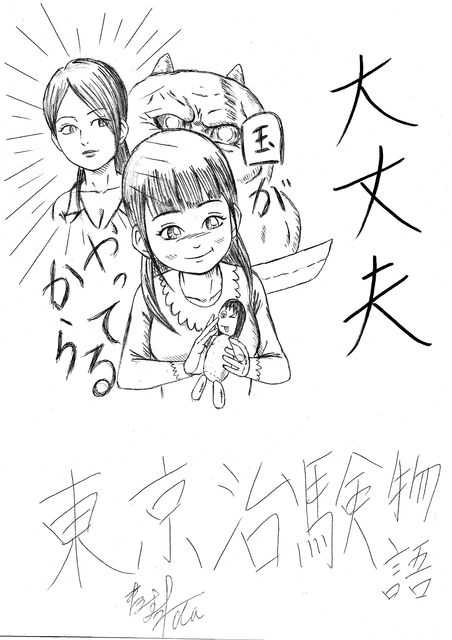 大丈夫
国が
やってる
から
東京治験物語